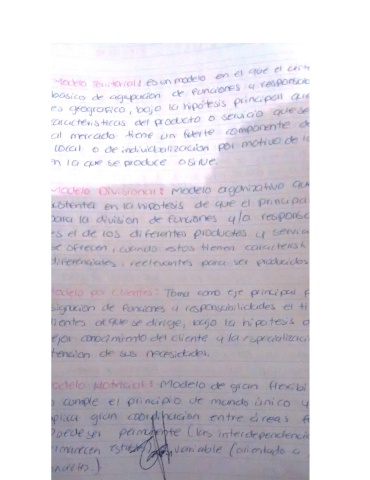 Modelo Territorial: es un modelo en el que el crite
basico de agrupacion de funciones y responsab
es geografico, bajo la hipotesis principal que
caracteristicas del producto o servicio que se
al mercado tiene un fuerte componente de
local o de individualización por motivo de la
n la que se produce o sirve.
Modelo Divisional: Modelo organizativo que
ustenta en la hipotesis de que el principal
para la division de funciones y/o responsa
es el de los diferentes productos y servici
se ofrecen, cuando estos tienen caracterist
diferenciales, relevantes para ser producidos
Modelo por Clientes: Toma como eje principal p
signación de funciones y responsabilidades el ti
lientes al que se dirige, bajo la hipotesis d
ejor conocimiento del cliente y la especializaci
tencion de sus necesidades.
odelo Matricial: Modelo de gran flexibi
o cumple el principio de mando único y
plica gran coordinacion entre áreas
Puede ser permanente (las interdependencia
rmanecen estables) variable (orientado a